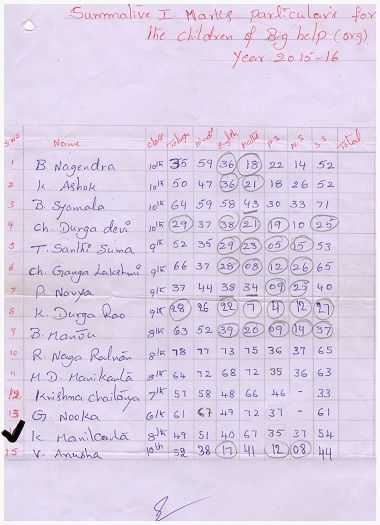 Summative I Marks particulars for
the children of Big help (org)
Year 2015-16
S.No Name class Telugu Hindi English Maths P.S N.S S.S Total
1 B. Nagendra 10th 35 59 36 18 22 14 52
2 K. Ashok 10th 50 47 36 21 18 26 52
3 B. Syamala 10th 64 59 58 43 30 33 71
4 Ch. Durga devi 10th 29 37 38 21 19 10 25
5 T. Santhi Suma 9th 52 35 29 23 05 15 53
6 Ch. Ganga Lakshmi 9th 66 37 28 08 12 26 65
7 P. Navya 9th 37 44 38 34 09 25 40
8 K. Durga Rao 9th 28 26 22 7 4 12 27
9 B. 8th 63 52 39 20 09 14 37
10 R. Naga 8th 78 77 73 75 36 37 65
11 M.D. Manikanta 8th 64 72 68 72 35 36 63
12 Krishna Chaitanya 7th 57 58 48 66 46 - 33
13 G. Nooka 6th 61 67 49 72 37 - 61
K. Manikanta 8th 49 51 40 67 35 37 54
15 V. Anusha 10th 52 38 17 41 12 08 44